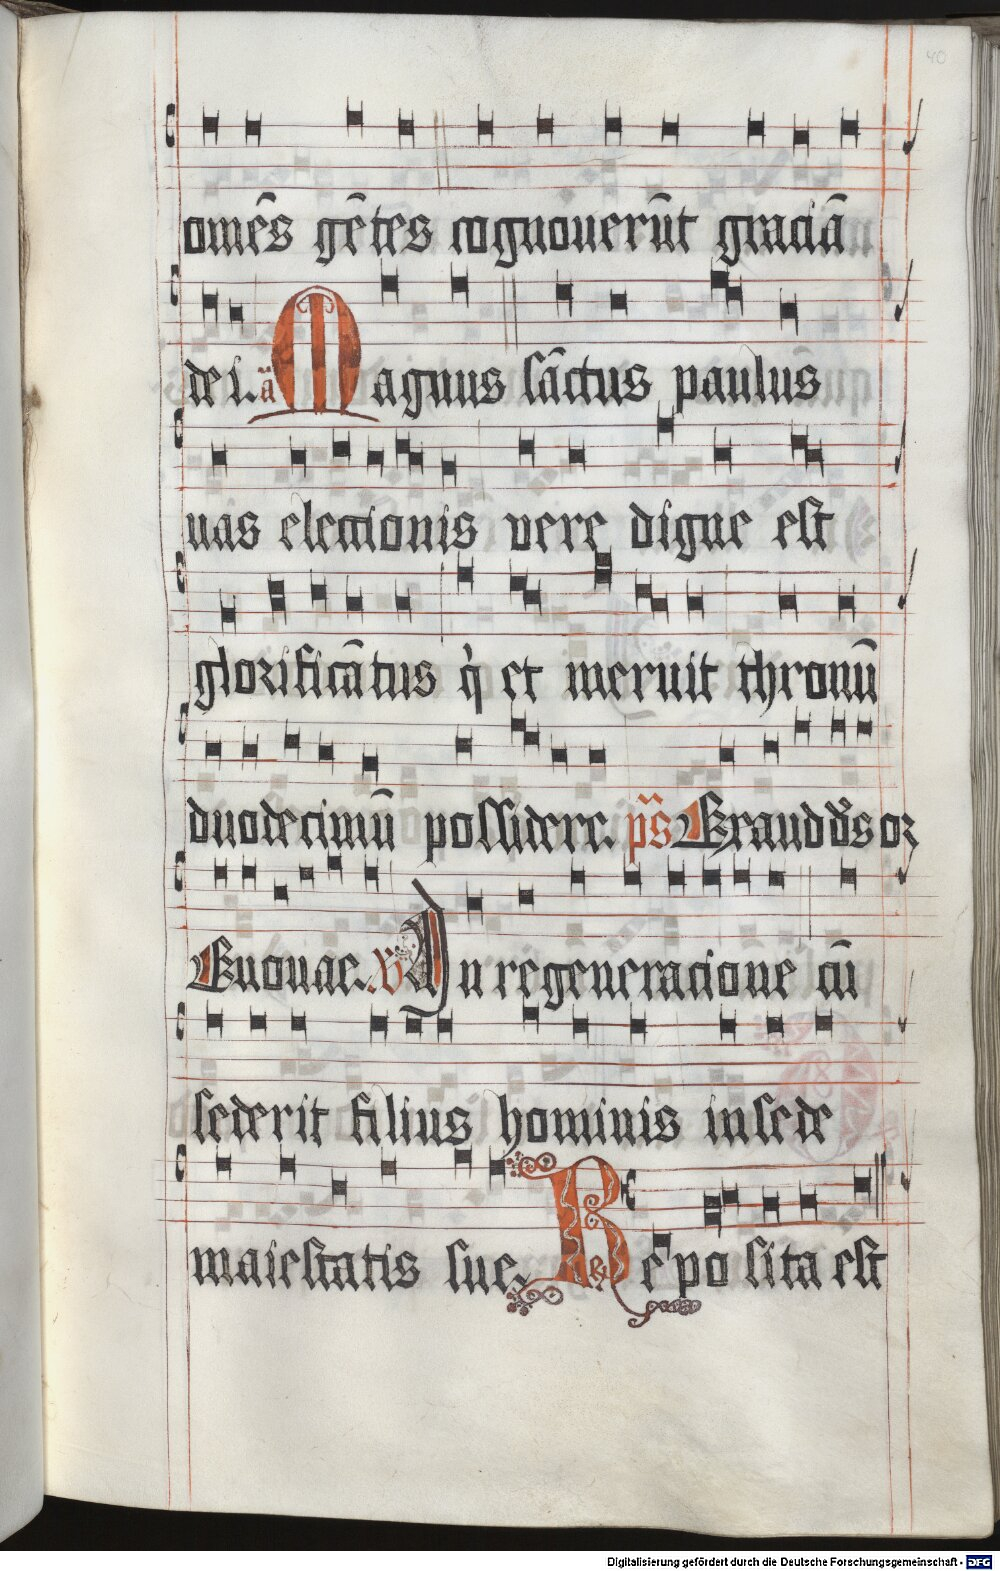 40
omēs gētes cognouerūt graciā
dei. ā Magnus sāctus paulus
uas electionis vere digne est
glorificātus q̇ et meruit thronū
duodecimū possidere. p̄s Exaud d̄s or
Euouae. V In regeneracione cū
sederit filius hominis in sede
maiestatis sue. Re posita est
Digitalisierung gefördert durch die Deutsche Forschungsgemeinschaft - DFG